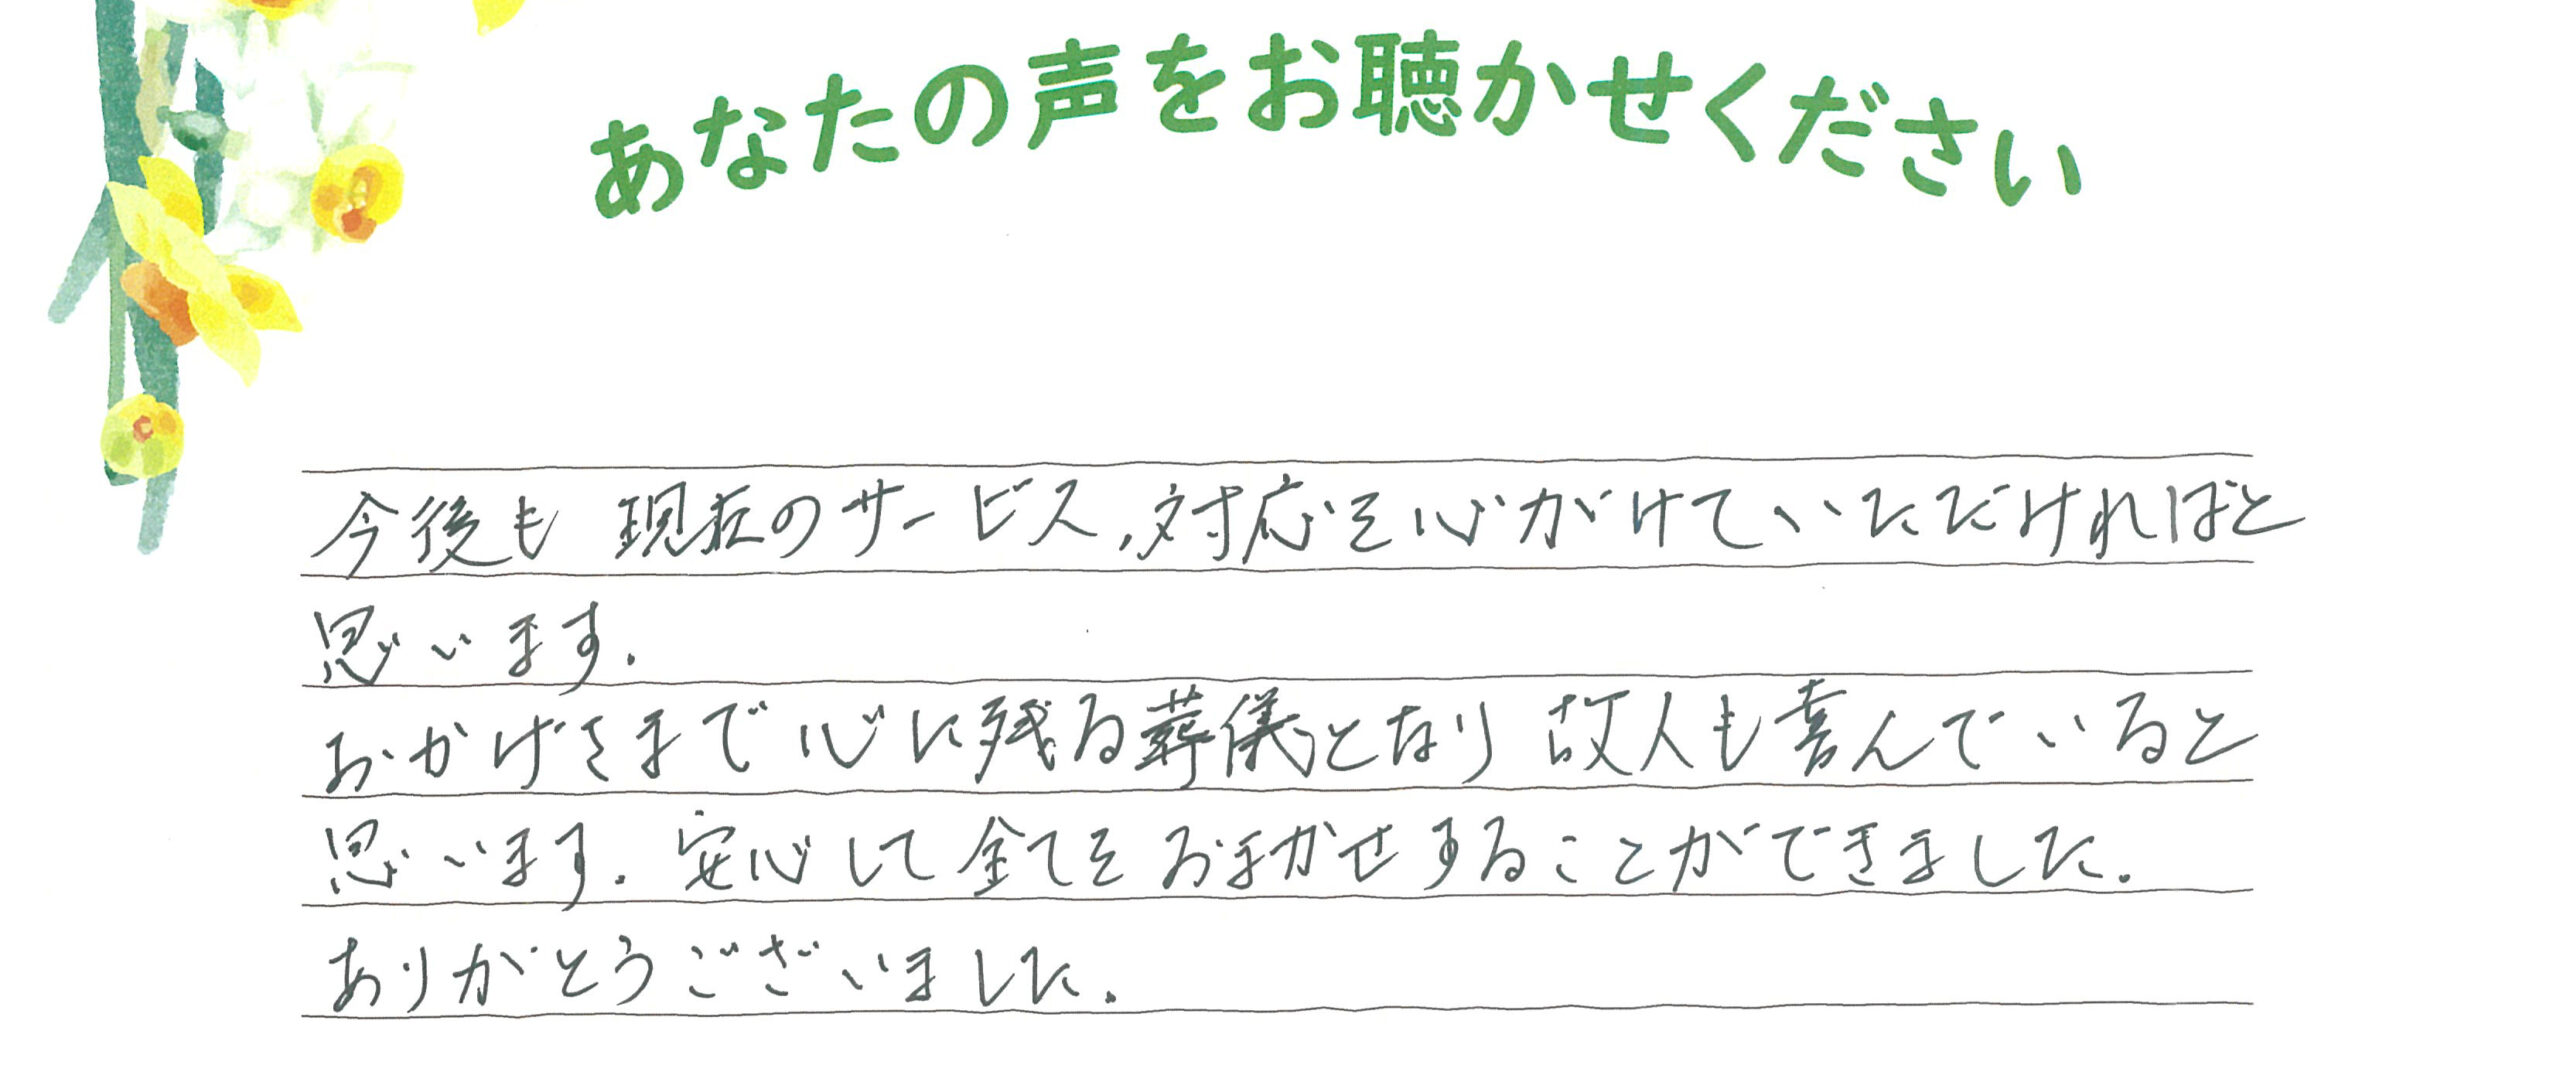 あなたの声をお聴かせください
今後も 現在のサービス,対応を心がけていただければと
思います.
おかげさまで心に残る葬儀となり 故人も喜んでいると
思います. 安心して全てをおまかせすることができました.
ありがとうございました.